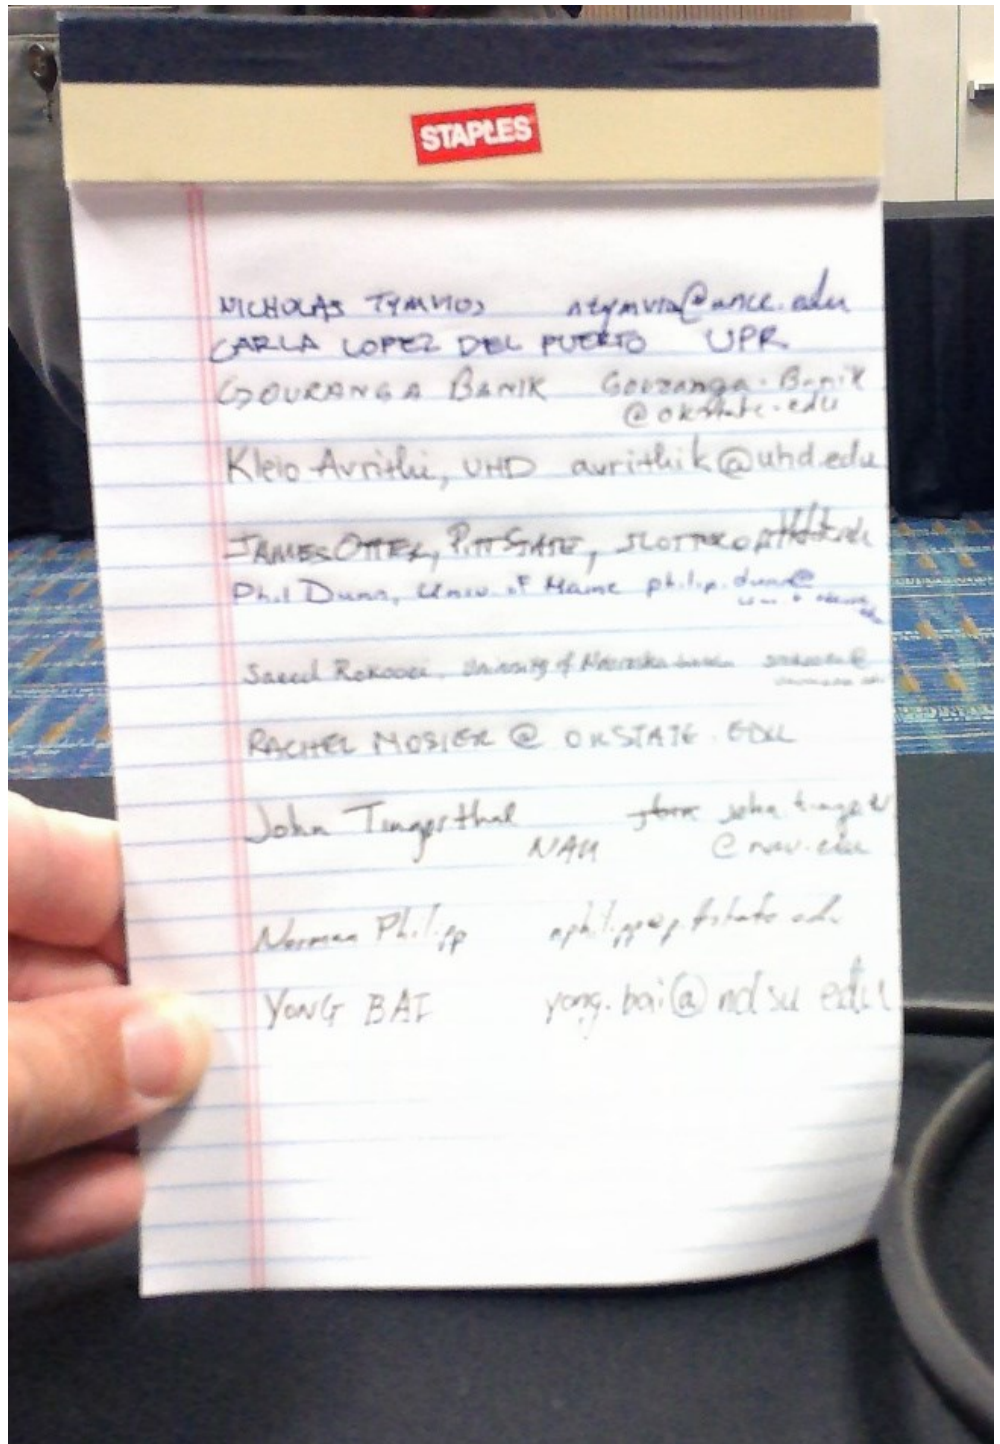 STAPLES
NICHOLAS TYMVIOS ntymvio@uncc.edu
CARLA LOPEZ DEL PUERTO UPR
GOURANGA BANIK Gouranga.Banik
@okstate.edu
Kleio Avrithi, UHD avrithik@uhd.edu
JAMES OTTER, PITTSTATE,
Phil Dunn, Univ. of Maine philip.dunn@
Saeed Rokooei, University of Nebraska
RACHEL MOSIER @ OKSTATE.EDU
John Tingerthal john.tinger
NAU @nau.edu
Norman Philipp nphilipp@pittstate.edu
YONG BAI yong.bai@ndsu.edu